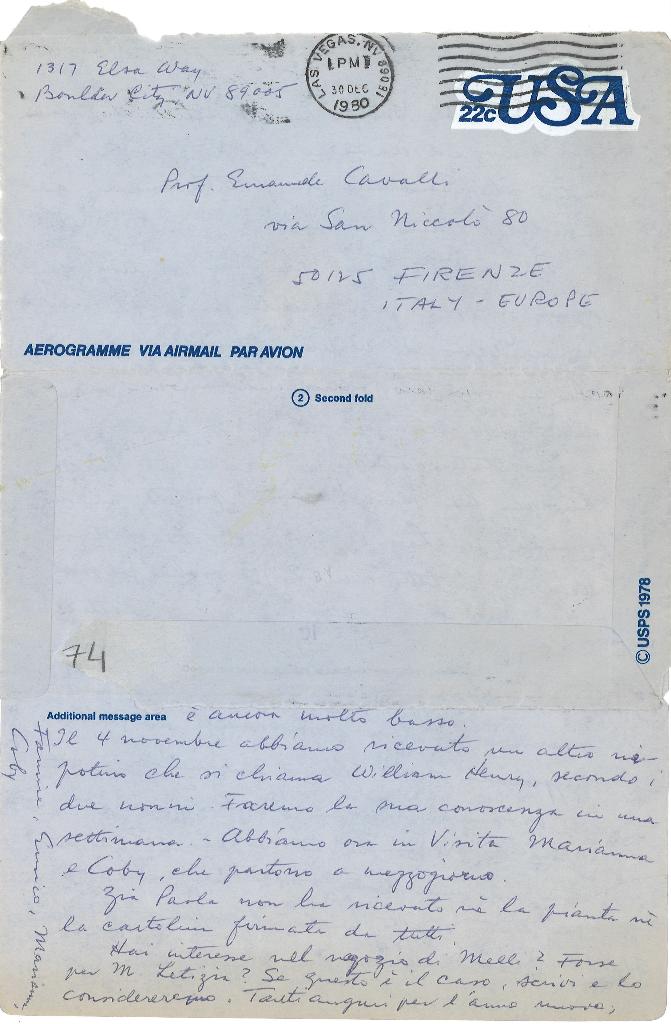 1317 Elsa Way
Boulder City, NV 89005
LAS VEGAS, NV 89091
PM
30 DEC
1980
22c USA
Prof. Emanuele Cavalli
via San Niccolò 80
50125 FIRENZE
ITALY - EUROPE
AEROGRAMME VIA AIRMAIL PAR AVION
2 Second fold
© USPS 1978
74
Additional message area è ancora molto basso.
Il 4 novembre abbiamo ricevuto un altro ni-
potino che si chiama William Henry, secondo i
due nonni. Faremo la sua conoscenza in una
settimana. - Abbiamo ora in visita Marianna
e Coby, che partono a mezzogiorno.
Zia Paola non ha ricevuto nè la pianta nè
la cartolina firmata da tutti
Hai interesse nel negozio di Melli? Forse
per M. Letizia? Se questo è il caso, scrivi e lo
considereremo. Tanti auguri per l'anno nuovo,
Fannie, Enrico, Marianna
Coby